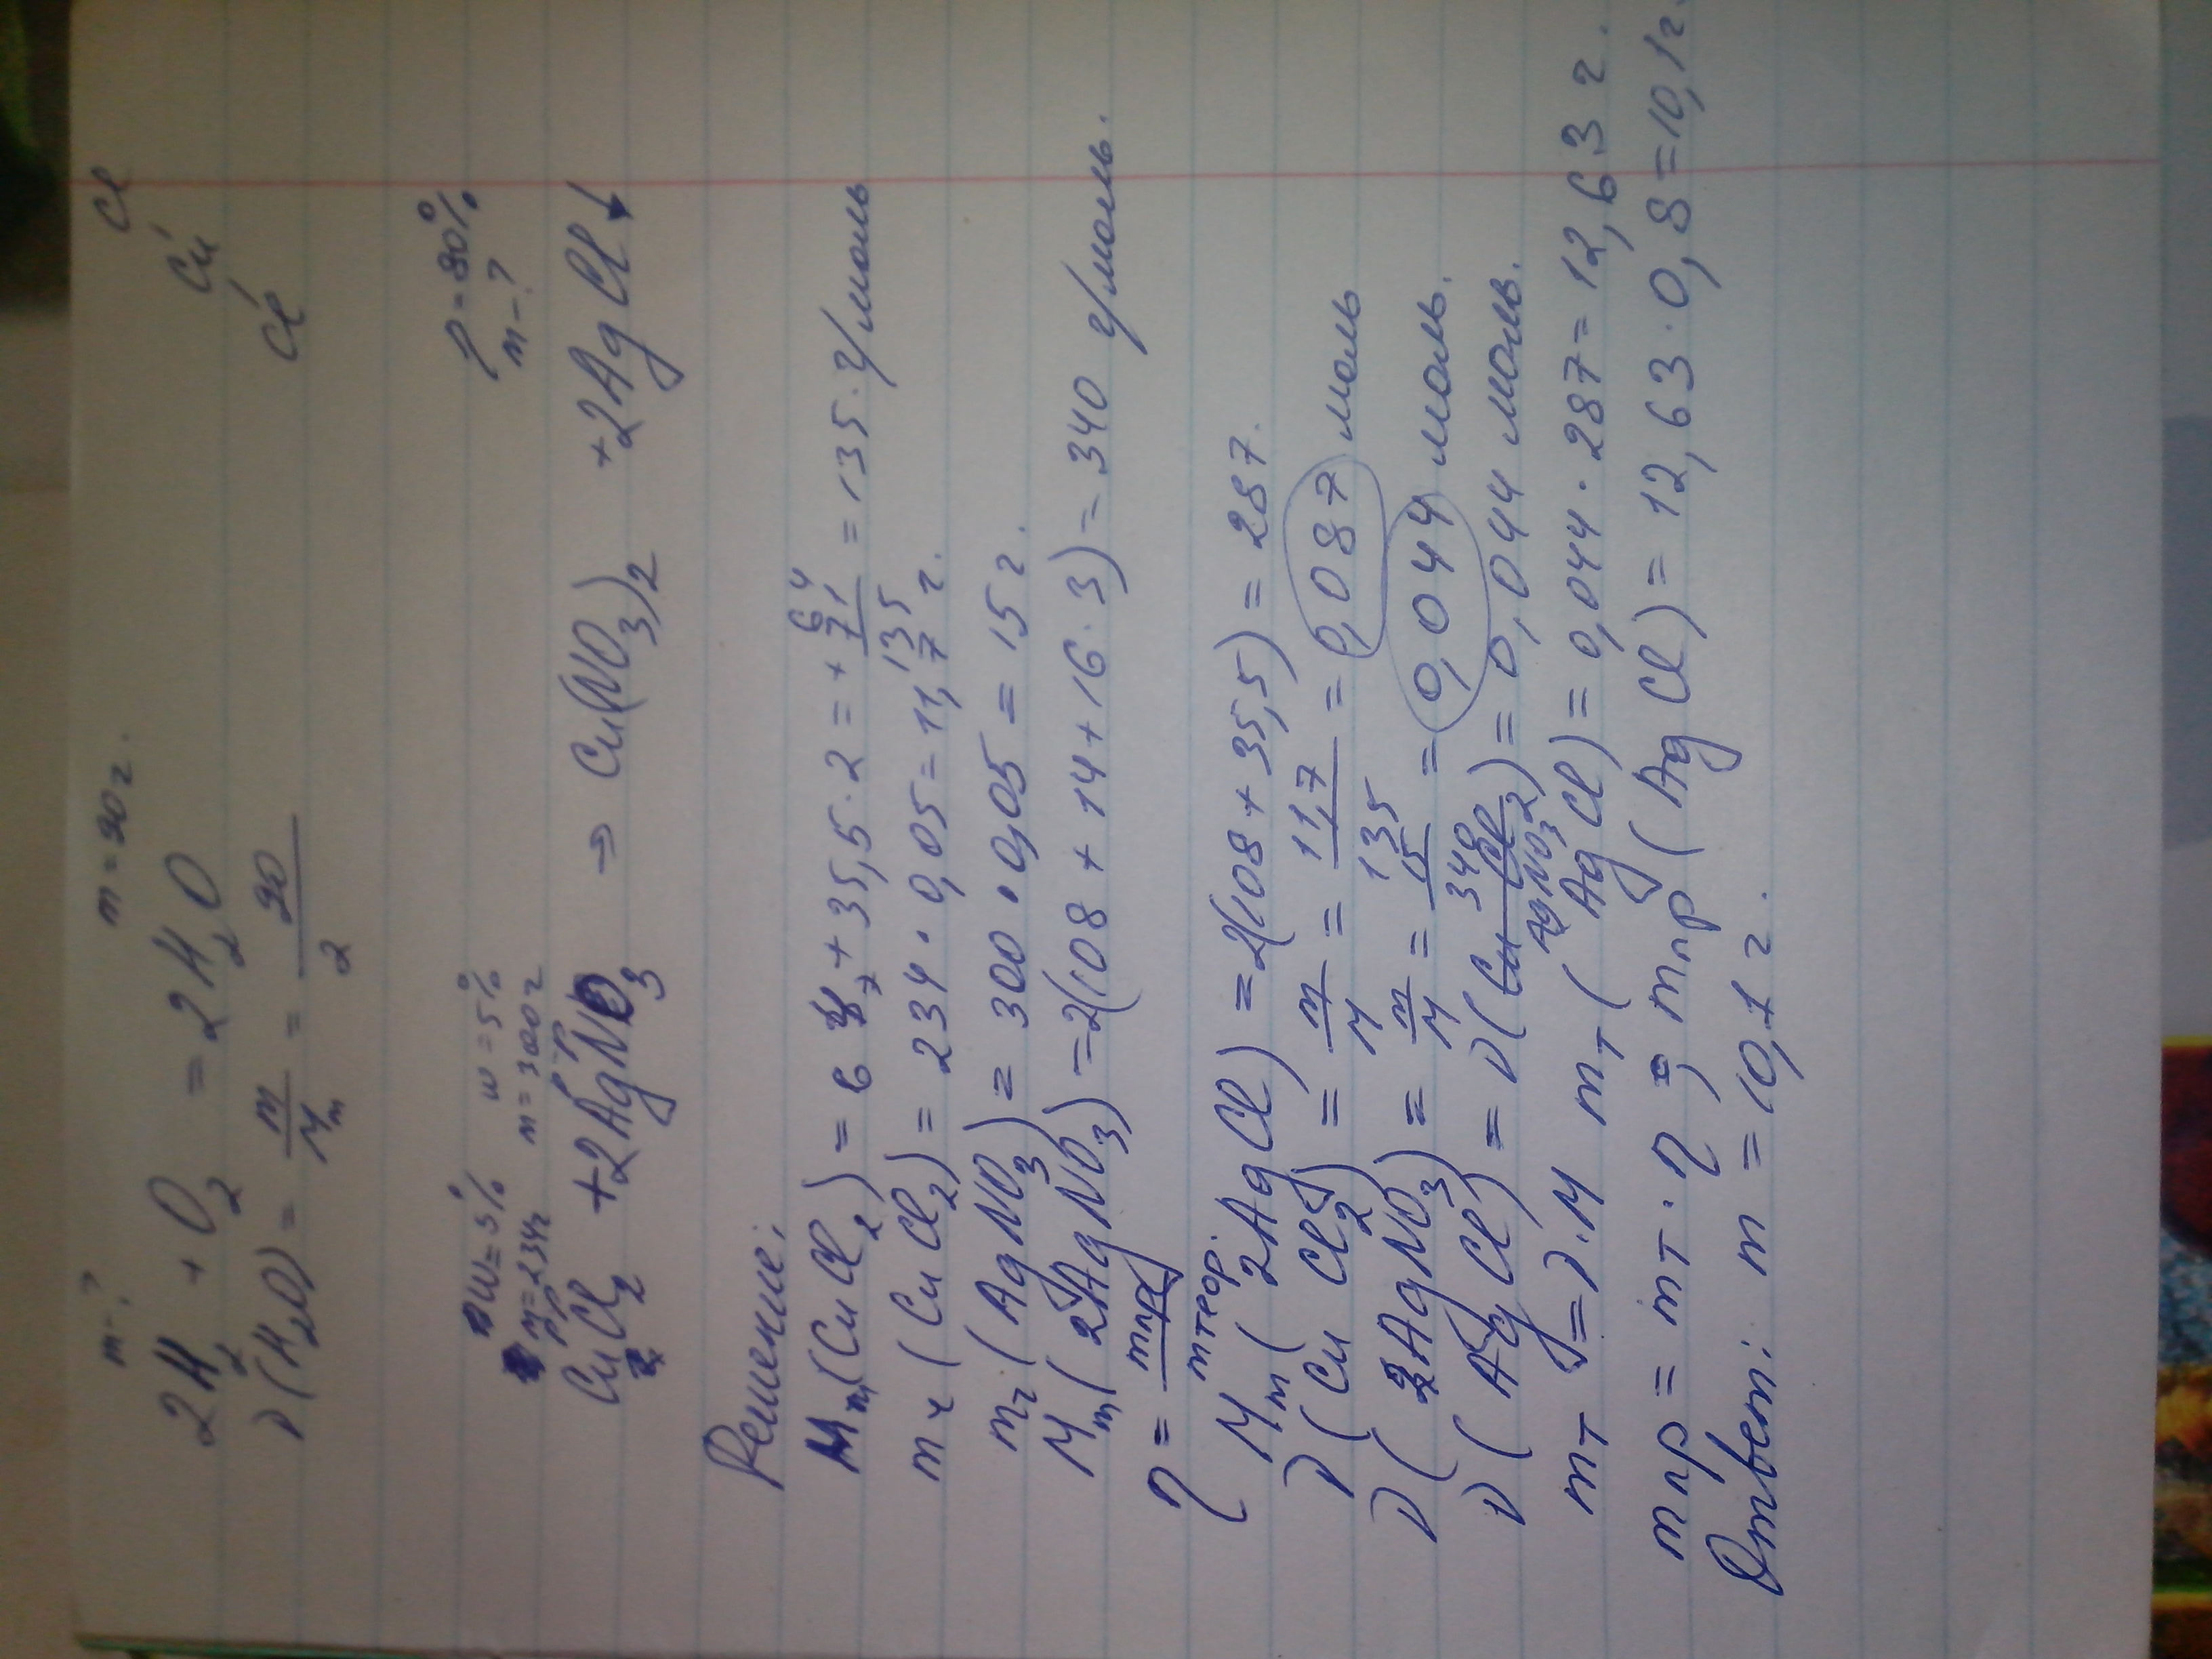 m-? m=20г. Cl
2H₂ + O₂ = 2H₂O Cu
ν(H₂O) = m/Mm = 20/2 Cl
W=5% w=5% η=80%
m р-р=234г m р-р=300г m-?
CuCl₂ + 2AgNO₃ ⇒ Cu(NO₃)₂ + 2AgCl↓
Решение:
Mm(CuCl₂) = 64 + 35,5·2 = + 64 71 135 = 135 г/моль
m ч (CuCl₂) = 234·0,05 = 11,7 г.
mч (AgNO₃) = 300·0,05 = 15 г.
Mm(2AgNO₃) = 2(108 + 14 + 16·3) = 340 г/моль.
η = mпр/mтеор.
Mm(2AgCl) = 2(108 + 35,5) = 287.
ν(CuCl₂) = m/M = 11,7/135 = 0,087 моль
ν(2AgNO₃) = m/M = 15/340 = 0,044 моль.
ν(AgCl) = ν(AgNO₃) = 0,044 моль.
mт = ν·M mт(AgCl) = 0,044·287 = 12,63 г.
mпр = mт·η; mпр(AgCl) = 12,63·0,8 = 10,1г.
Ответ: m = 10,1 г.